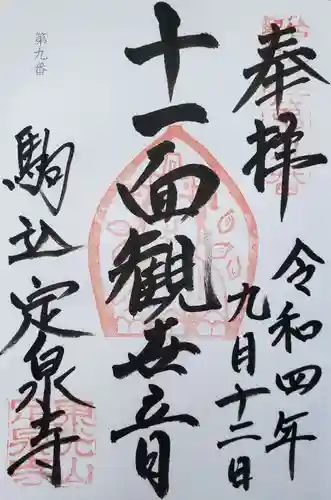 奉拝
令和四年
九月十二日
十一面観世音
第九番
駒込定泉寺